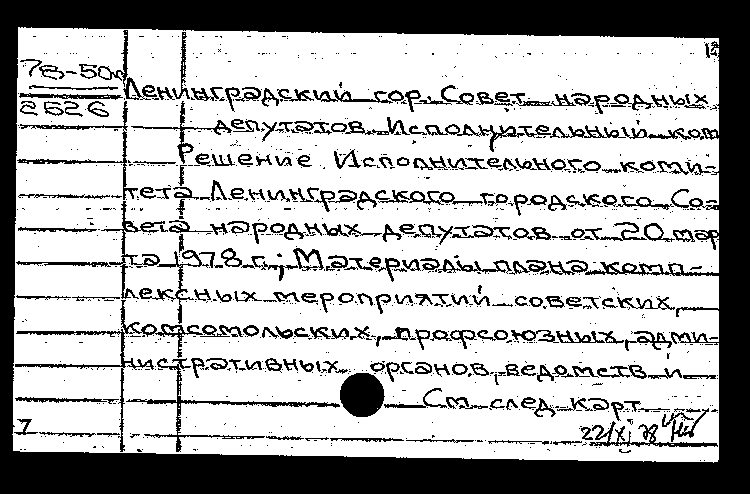 78-50м
2526
Ленинградский гор. Совет народных
депутатов. Исполнительный ком
Решение Исполнительного коми-
тета Ленинградского городского Со-
вета народных депутатов от 20 мар
та 1978 г.; Материалы плана комп-
лексных мероприятий советских,
комсомольских, профсоюзных, адми-
нистративных органов, ведомств и
См. след. карт.
7
22/XI 78